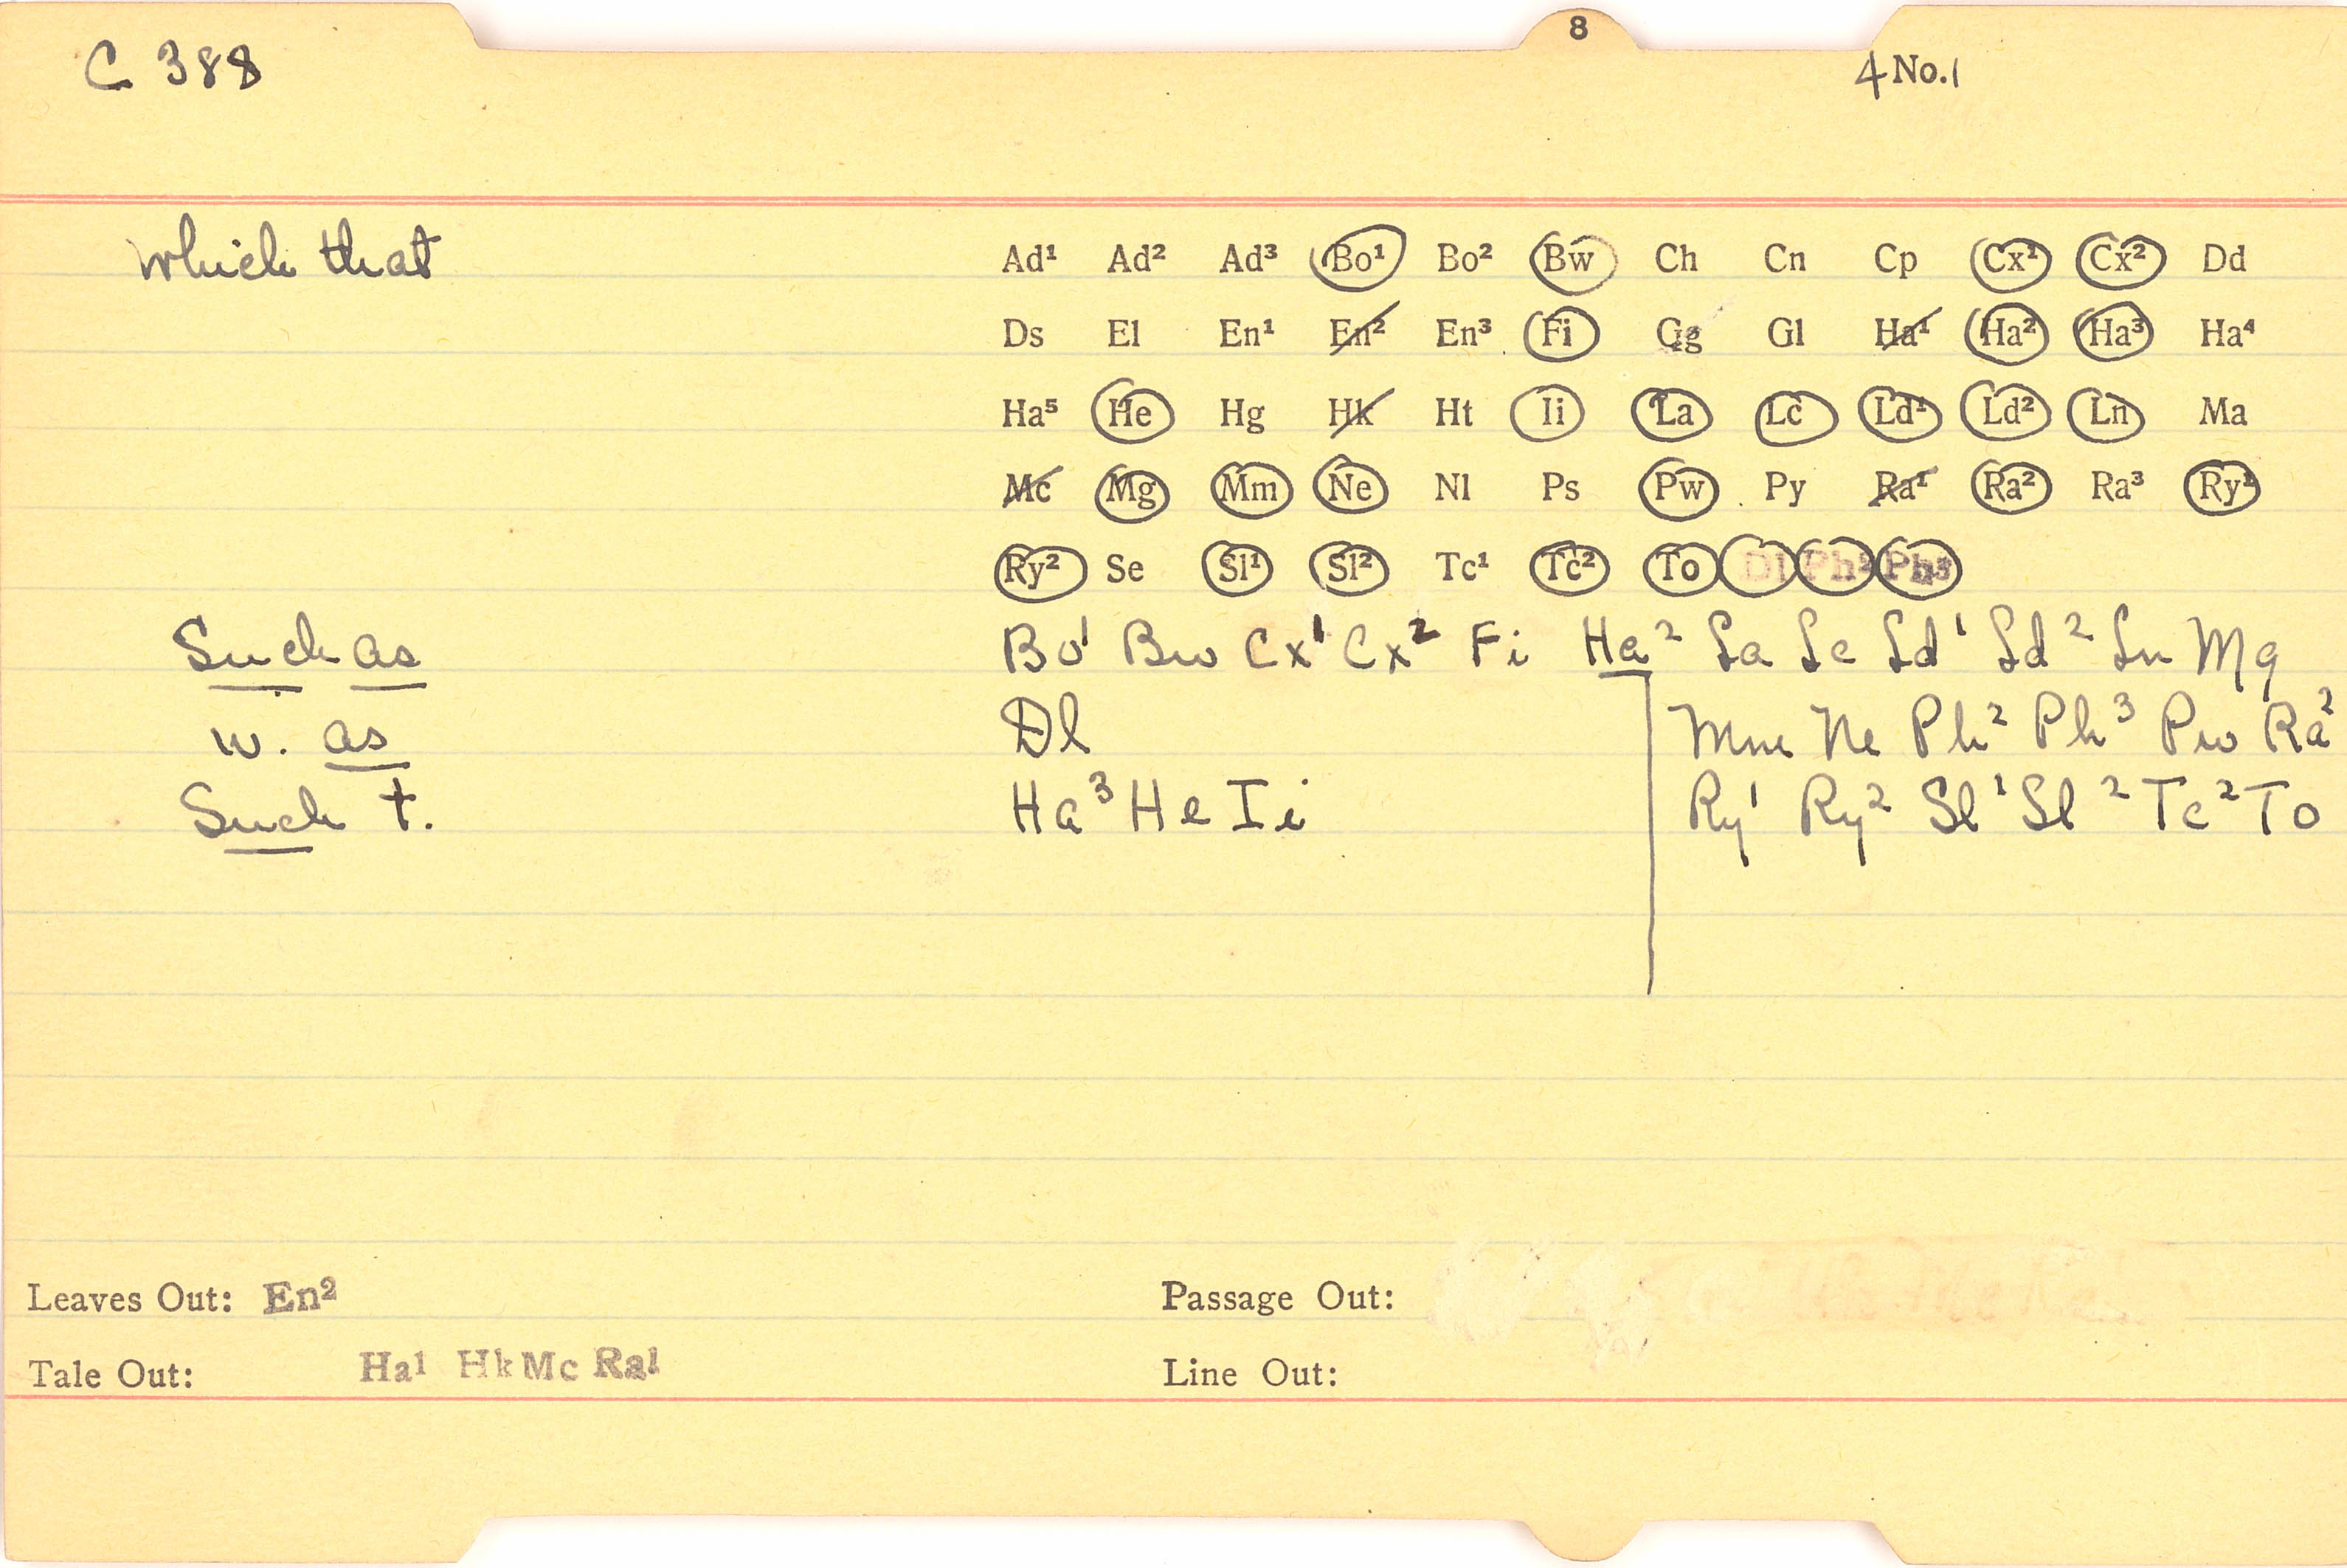 8
C 388 4 No. 1
which that Ad¹ Ad² Ad³ Bo¹ Bo² Bw Ch Cn Cp Cx¹ Cx² Dd
Ds El En¹ En² En³ Fi Gg Gl Ha¹ Ha² Ha³ Ha⁴
Ha⁵ He Hg Hk Ht Ii La Lc Ld¹ Ld² Ln Ma
Mc Mg Mm Ne Nl Ps Pw Py Ra¹ Ra² Ra³ Ry¹
Ry² Se Sl¹ Sl² Tc¹ Tc² To Dl Ph² Ph³
Such as Bo¹ Bw Cx¹ Cx² Fi Ha² La Lc Ld¹ Ld² Ln Mg
w. as Dl Mm Ne Ph² Ph³ Pw Ra²
Such t. Ha³ He Ii Ry¹ Ry² Sl¹ Sl² Tc² To
Leaves Out: En² Passage Out:
Tale Out: Ha¹ Hk Mc Ra¹ Line Out: